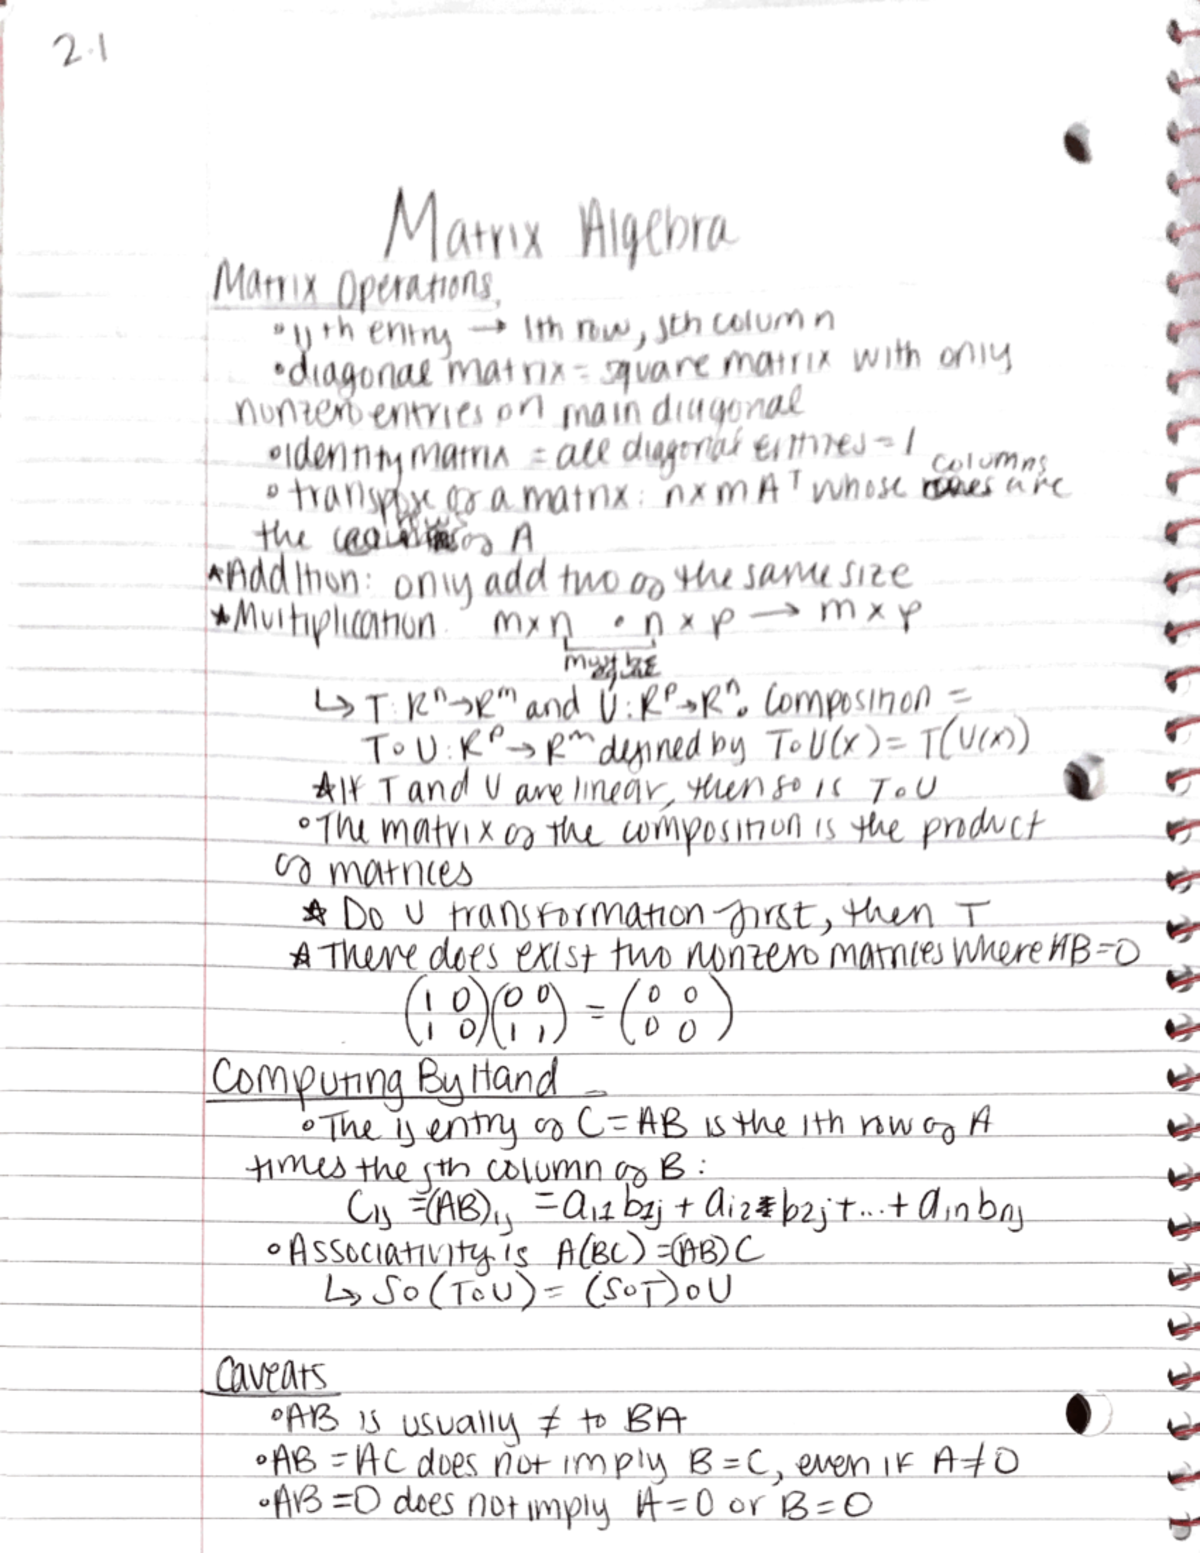 2.1
Matrix Algebra
Matrix Operations
• ijth entry → ith row, jth column
• diagonal matrix = square matrix with only
nonzero entries on main diagonal
• identity matrix = all diagonal entries = 1
columns
• transpose of a matrix: n x m Aᵀ whose are
the of A
* Addition: only add two of the same size
* Multiplication m x n • n x p → m x p
must be
↳ T: Rⁿ→Rᵐ and U: Rᵖ→Rⁿ. Composition =
T∘U: Rᵖ→Rᵐ defined by T∘U(x) = T(U(x))
* If T and U are linear, then so is T∘U
• The matrix of the composition is the product
of matrices
* Do U transformation first, then T
* There does exist two nonzero matrices where AB=0
(1 0)(0 0) = (0 0)
(1 0)(1 1) (0 0)
Computing By Hand
• The ij entry of C = AB is the ith row of A
times the jth column of B:
Cij = (AB)ij = ai1 b1j + ai2 b2j + ... + ain bnj
• Associativity is A(BC) = (AB)C
↳ S∘(T∘U) = (S∘T)∘U
Caveats
• AB is usually ≠ to BA
• AB = AC does not imply B = C, even if A ≠ 0
• AB = 0 does not imply A = 0 or B = 0